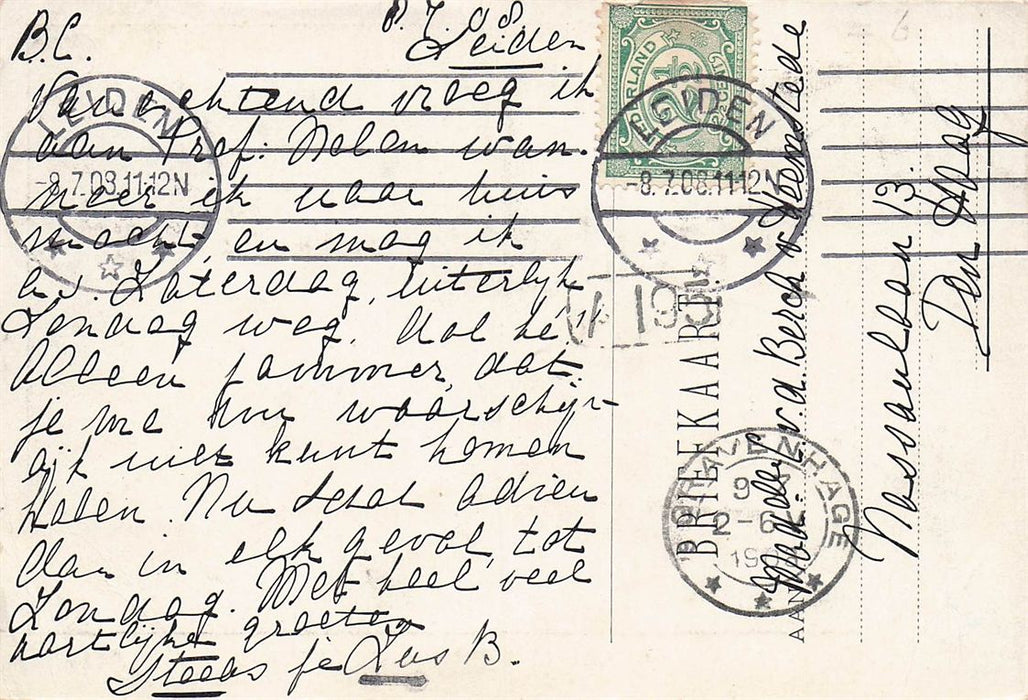 B.C.
8.7.08. Leiden
Van ochtend vroeg ik
aan Prof. Nolen wan-
neer ik naar huis
mocht en mag ik
a.s. Zaterdag, uiterlijk
Zondag weg. Dol hè!
Alleen jammer, dat
je me nu waarschijn-
lijk niet kunt komen
halen. Nu tot adieu
dan in elk geval, tot
Zondag. Met heel veel
hartlijke groeten
Steeds je Lus B.
LEIDEN
-8.7.08.11-12N
NEDERLAND
2½ CENT
LEIDEN
-8.7.08.11-12N
BRIEFKAART.
AAN
v.d. Berch v. Heemstede
Nassaulaan 13.
Den Haag
'S GRAVENHAGE
2-6
= 6